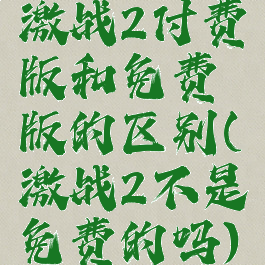 激战2付费
版和免费
版的区别(
激战2不是
免费的吗)